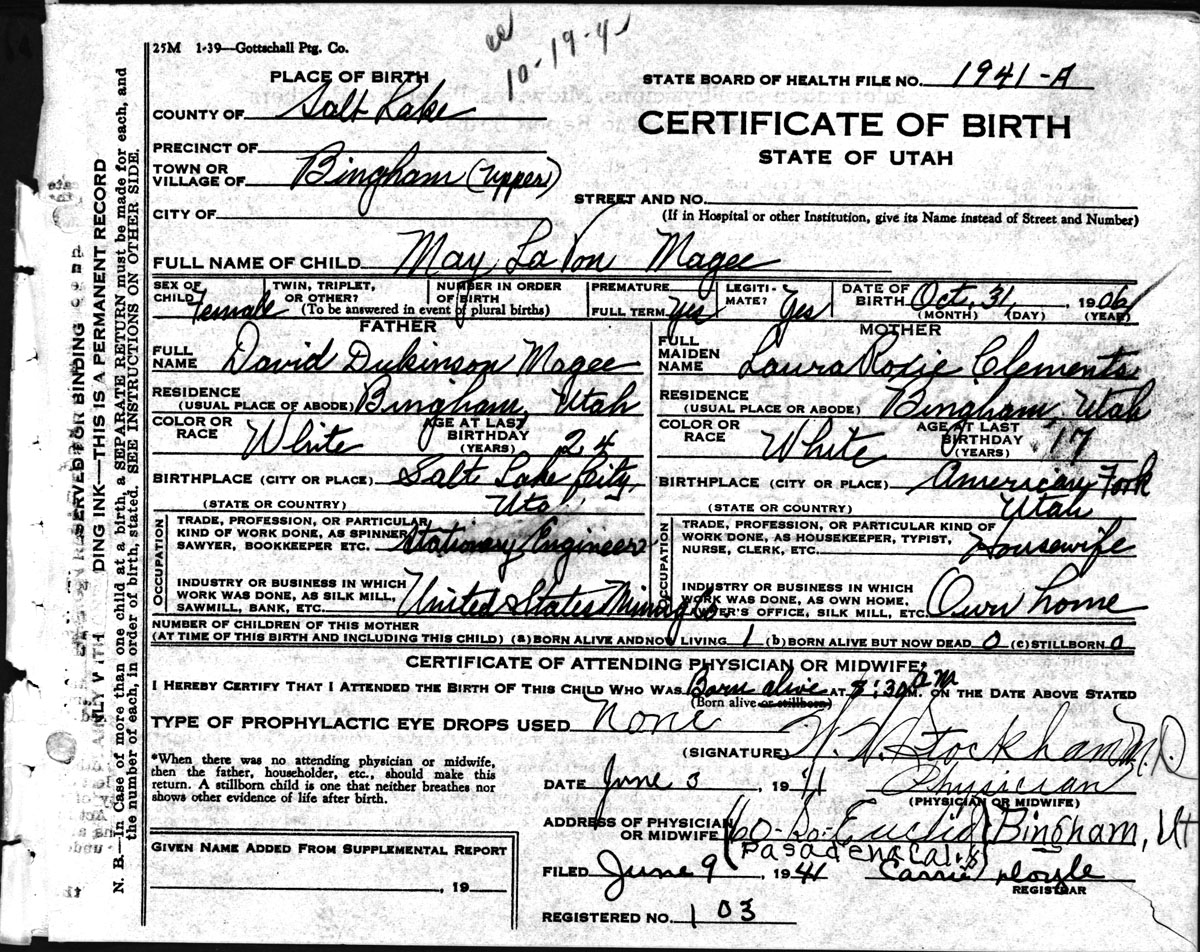 25M 1-39—Gottschall Ptg. Co.
10-19-4
STATE BOARD OF HEALTH FILE NO. 1941-A
PLACE OF BIRTH
COUNTY OF Salt Lake
CERTIFICATE OF BIRTH
STATE OF UTAH
PRECINCT OF
TOWN OR VILLAGE OF Bingham (Upper)
STREET AND NO.
(If in Hospital or other Institution, give its Name instead of Street and Number)
CITY OF
FULL NAME OF CHILD May LaVon Magee
SEX OF CHILD Female
TWIN, TRIPLET, OR OTHER?
NUMBER IN ORDER OF BIRTH
(To be answered in event of plural births)
PREMATURE
FULL TERM Yes
LEGITIMATE? Yes
DATE OF BIRTH Oct. 31, 1906
(MONTH) (DAY) (YEAR)
FATHER
FULL NAME David Dickinson Magee
RESIDENCE (USUAL PLACE OF ABODE) Bingham, Utah
COLOR OR RACE White
AGE AT LAST BIRTHDAY (YEARS) 24
BIRTHPLACE (CITY OR PLACE) Salt Lake City
(STATE OR COUNTRY) Uta
OCCUPATION
TRADE, PROFESSION, OR PARTICULAR
KIND OF WORK DONE, AS SPINNER,
SAWYER, BOOKKEEPER ETC. Stationary Engineer
INDUSTRY OR BUSINESS IN WHICH
WORK WAS DONE, AS SILK MILL,
SAWMILL, BANK, ETC. United States Mining Co.
MOTHER
FULL MAIDEN NAME Laura Rosie Clements
RESIDENCE (USUAL PLACE OR ABODE) Bingham, Utah
COLOR OR RACE White
AGE AT LAST BIRTHDAY (YEARS) 17
BIRTHPLACE (CITY OR PLACE) American Fork
(STATE OR COUNTRY) Utah
OCCUPATION
TRADE, PROFESSION, OR PARTICULAR KIND OF
WORK DONE, AS HOUSEKEEPER, TYPIST,
NURSE, CLERK, ETC. Housewife
INDUSTRY OR BUSINESS IN WHICH
WORK WAS DONE, AS OWN HOME,
OFFICE, SILK MILL, ETC. Own home
NUMBER OF CHILDREN OF THIS MOTHER
(AT TIME OF THIS BIRTH AND INCLUDING THIS CHILD) (a) BORN ALIVE AND NOW LIVING 1 (b) BORN ALIVE BUT NOW DEAD 0 (c) STILLBORN 0
CERTIFICATE OF ATTENDING PHYSICIAN OR MIDWIFE*
I HEREBY CERTIFY THAT I ATTENDED THE BIRTH OF THIS CHILD WHO WAS Born alive AT 8:30 M. ON THE DATE ABOVE STATED
(Born alive or stillborn)
TYPE OF PROPHYLACTIC EYE DROPS USED None
(SIGNATURE) Stockham M.D.
*When there was no attending physician or midwife,
then the father, householder, etc., should make this
return. A stillborn child is one that neither breathes nor
shows other evidence of life after birth.
DATE June 3, 1941 Physician
(PHYSICIAN OR MIDWIFE)
ADDRESS OF PHYSICIAN OR MIDWIFE 60-So-Euclid Bingham, Ut
(Pasadena Cal.)
GIVEN NAME ADDED FROM SUPPLEMENTAL REPORT
, 19
FILED June 9, 1941 Carrie Doyle
REGISTRAR
REGISTERED NO. 103
RESERVED FOR BINDING
DING INK—THIS IS A PERMANENT RECORD
N. B.—In Case of more than one child at a birth, a SEPARATE RETURN must be made for each, and
the number of each, in order of birth, stated. SEE INSTRUCTIONS ON OTHER SIDE.